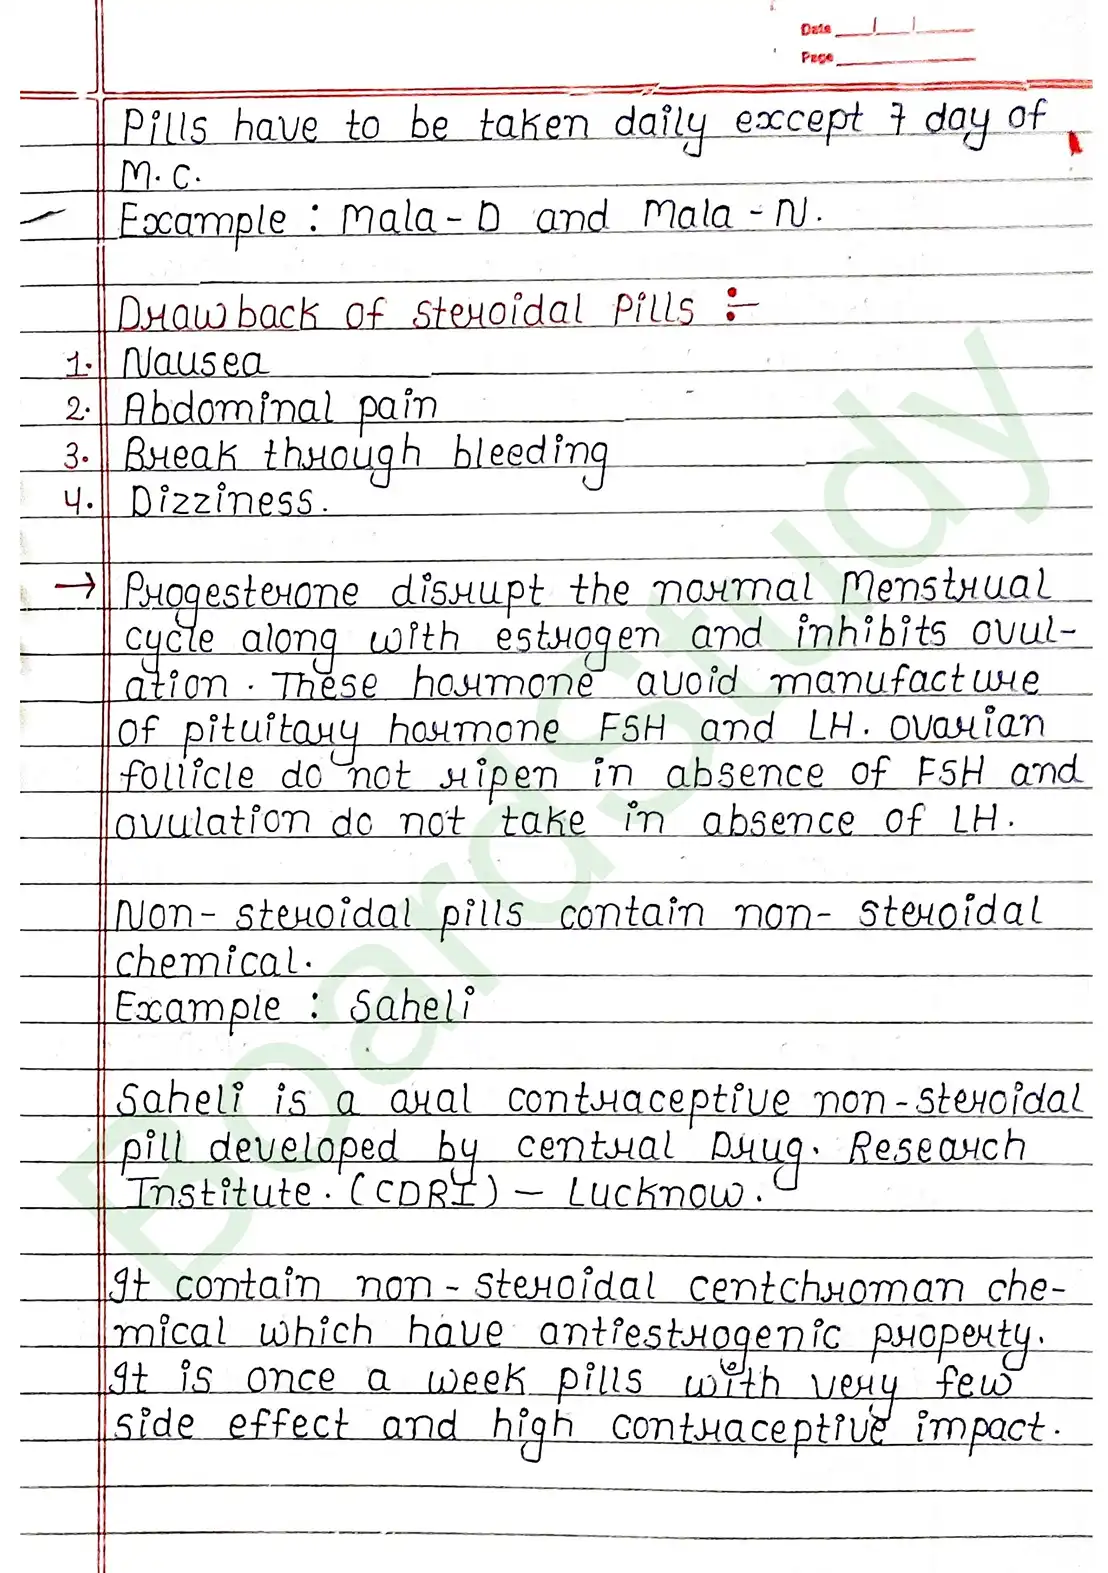 Date
Page
Pills have to be taken daily except 7 day of
M.C.
Example : Mala-D and Mala-N.
Drawback of steroidal Pills :-
1. Nausea
2. Abdominal pain
3. Break through bleeding
4. Dizziness.
→ Progesterone disrupt the normal Menstrual
cycle along with estrogen and inhibits ovul-
ation. These hormone avoid manufacture
of pituitary hormone FSH and LH. ovarian
follicle do not ripen in absence of FSH and
ovulation do not take in absence of LH.
Non-steroidal pills contain non-steroidal
chemical.
Example : Saheli
Saheli is a oral contraceptive non-steroidal
pill developed by central Drug. Research
Institute. (CDRI) - Lucknow.
It contain non-steroidal centchroman che-
mical which have antiestrogenic property.
It is once a week pills with very few
side effect and high contraceptive impact.
BoardStudy